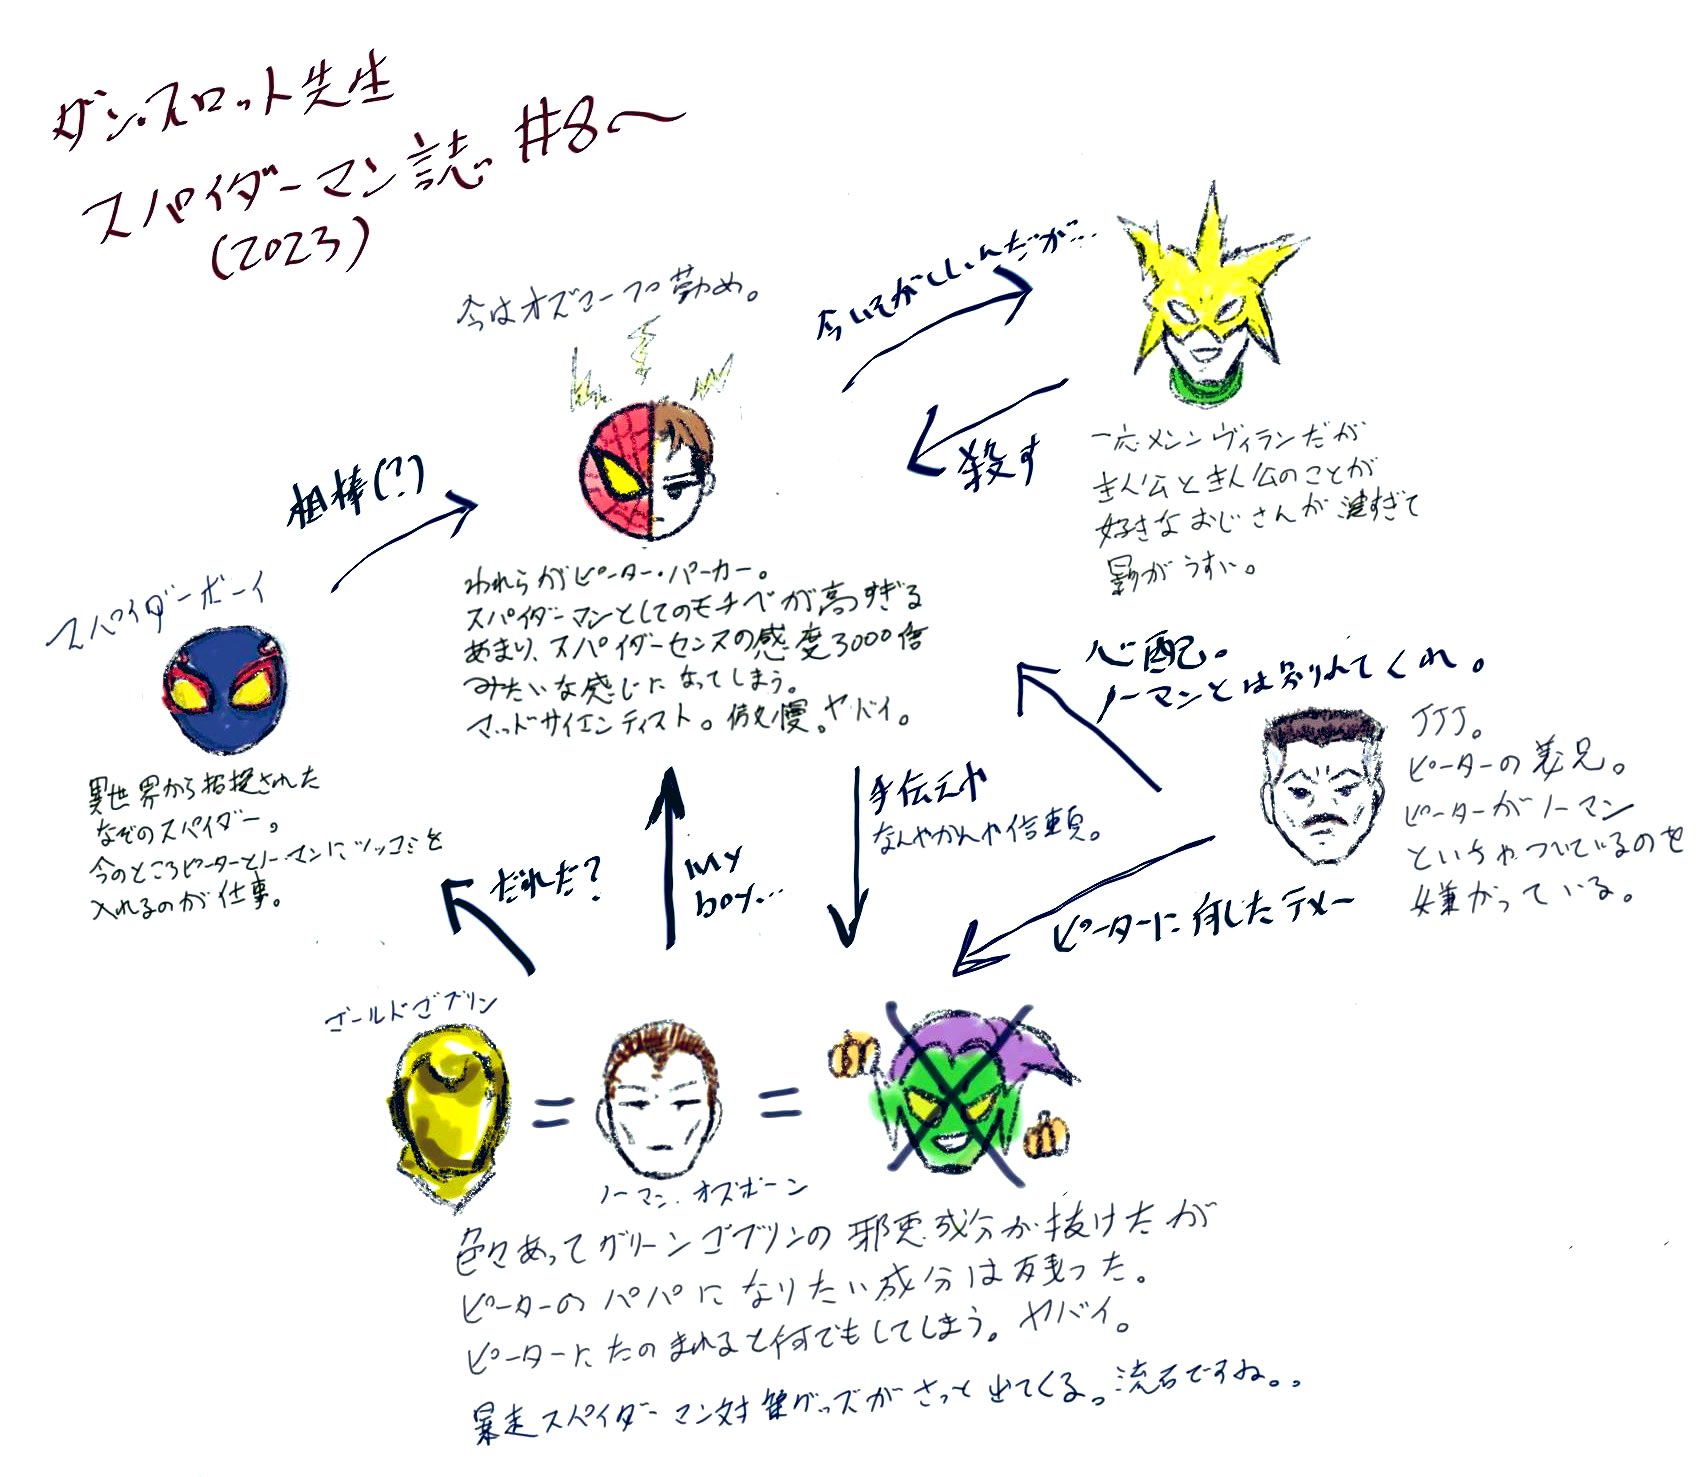 ダン・スロット先生
スパイダーマン誌 #8〜
(2023)
今はオズコープ勤め。
今いそがしいんだが…
殺す
一応メンンヴィランだが
主人公と主人公のことが
好きなおじさんが濃すぎて
影がうすい。
相棒(?)
スパイダーボーイ
異世界から招接された
なぞのスパイダー。
今のところピーターとノーマンにツッコミを
入れるのが仕事。
われらがピーター・パーカー。
スパイダーマンとしてのモチベが高すぎる
あまり、スパイダーセンスの感度3000倍
みたいな感じになってしまう。
マッドサイエンティスト。傲慢。ヤバイ。
心配。
ノーマンとは別れてくれ。
JJJ。
ピーターの義兄。
ピーターがノーマン
といちゃついているのを
嫌がっている。
手伝えや
なんやかんや信頼。
my
boy…
だれだ?
ピーターに何したテメー
ゴールドゴブリン
=
=
ノーマン・オズボーン
色々あってグリーンゴブリンの邪悪成分が抜けたが
ピーターのパパになりたい成分は残った。
ピーターにたのまれると何でもしてしまう。ヤバイ。
暴走スパイダーマン対策グッズがさっと出てくる。流石ですね。。